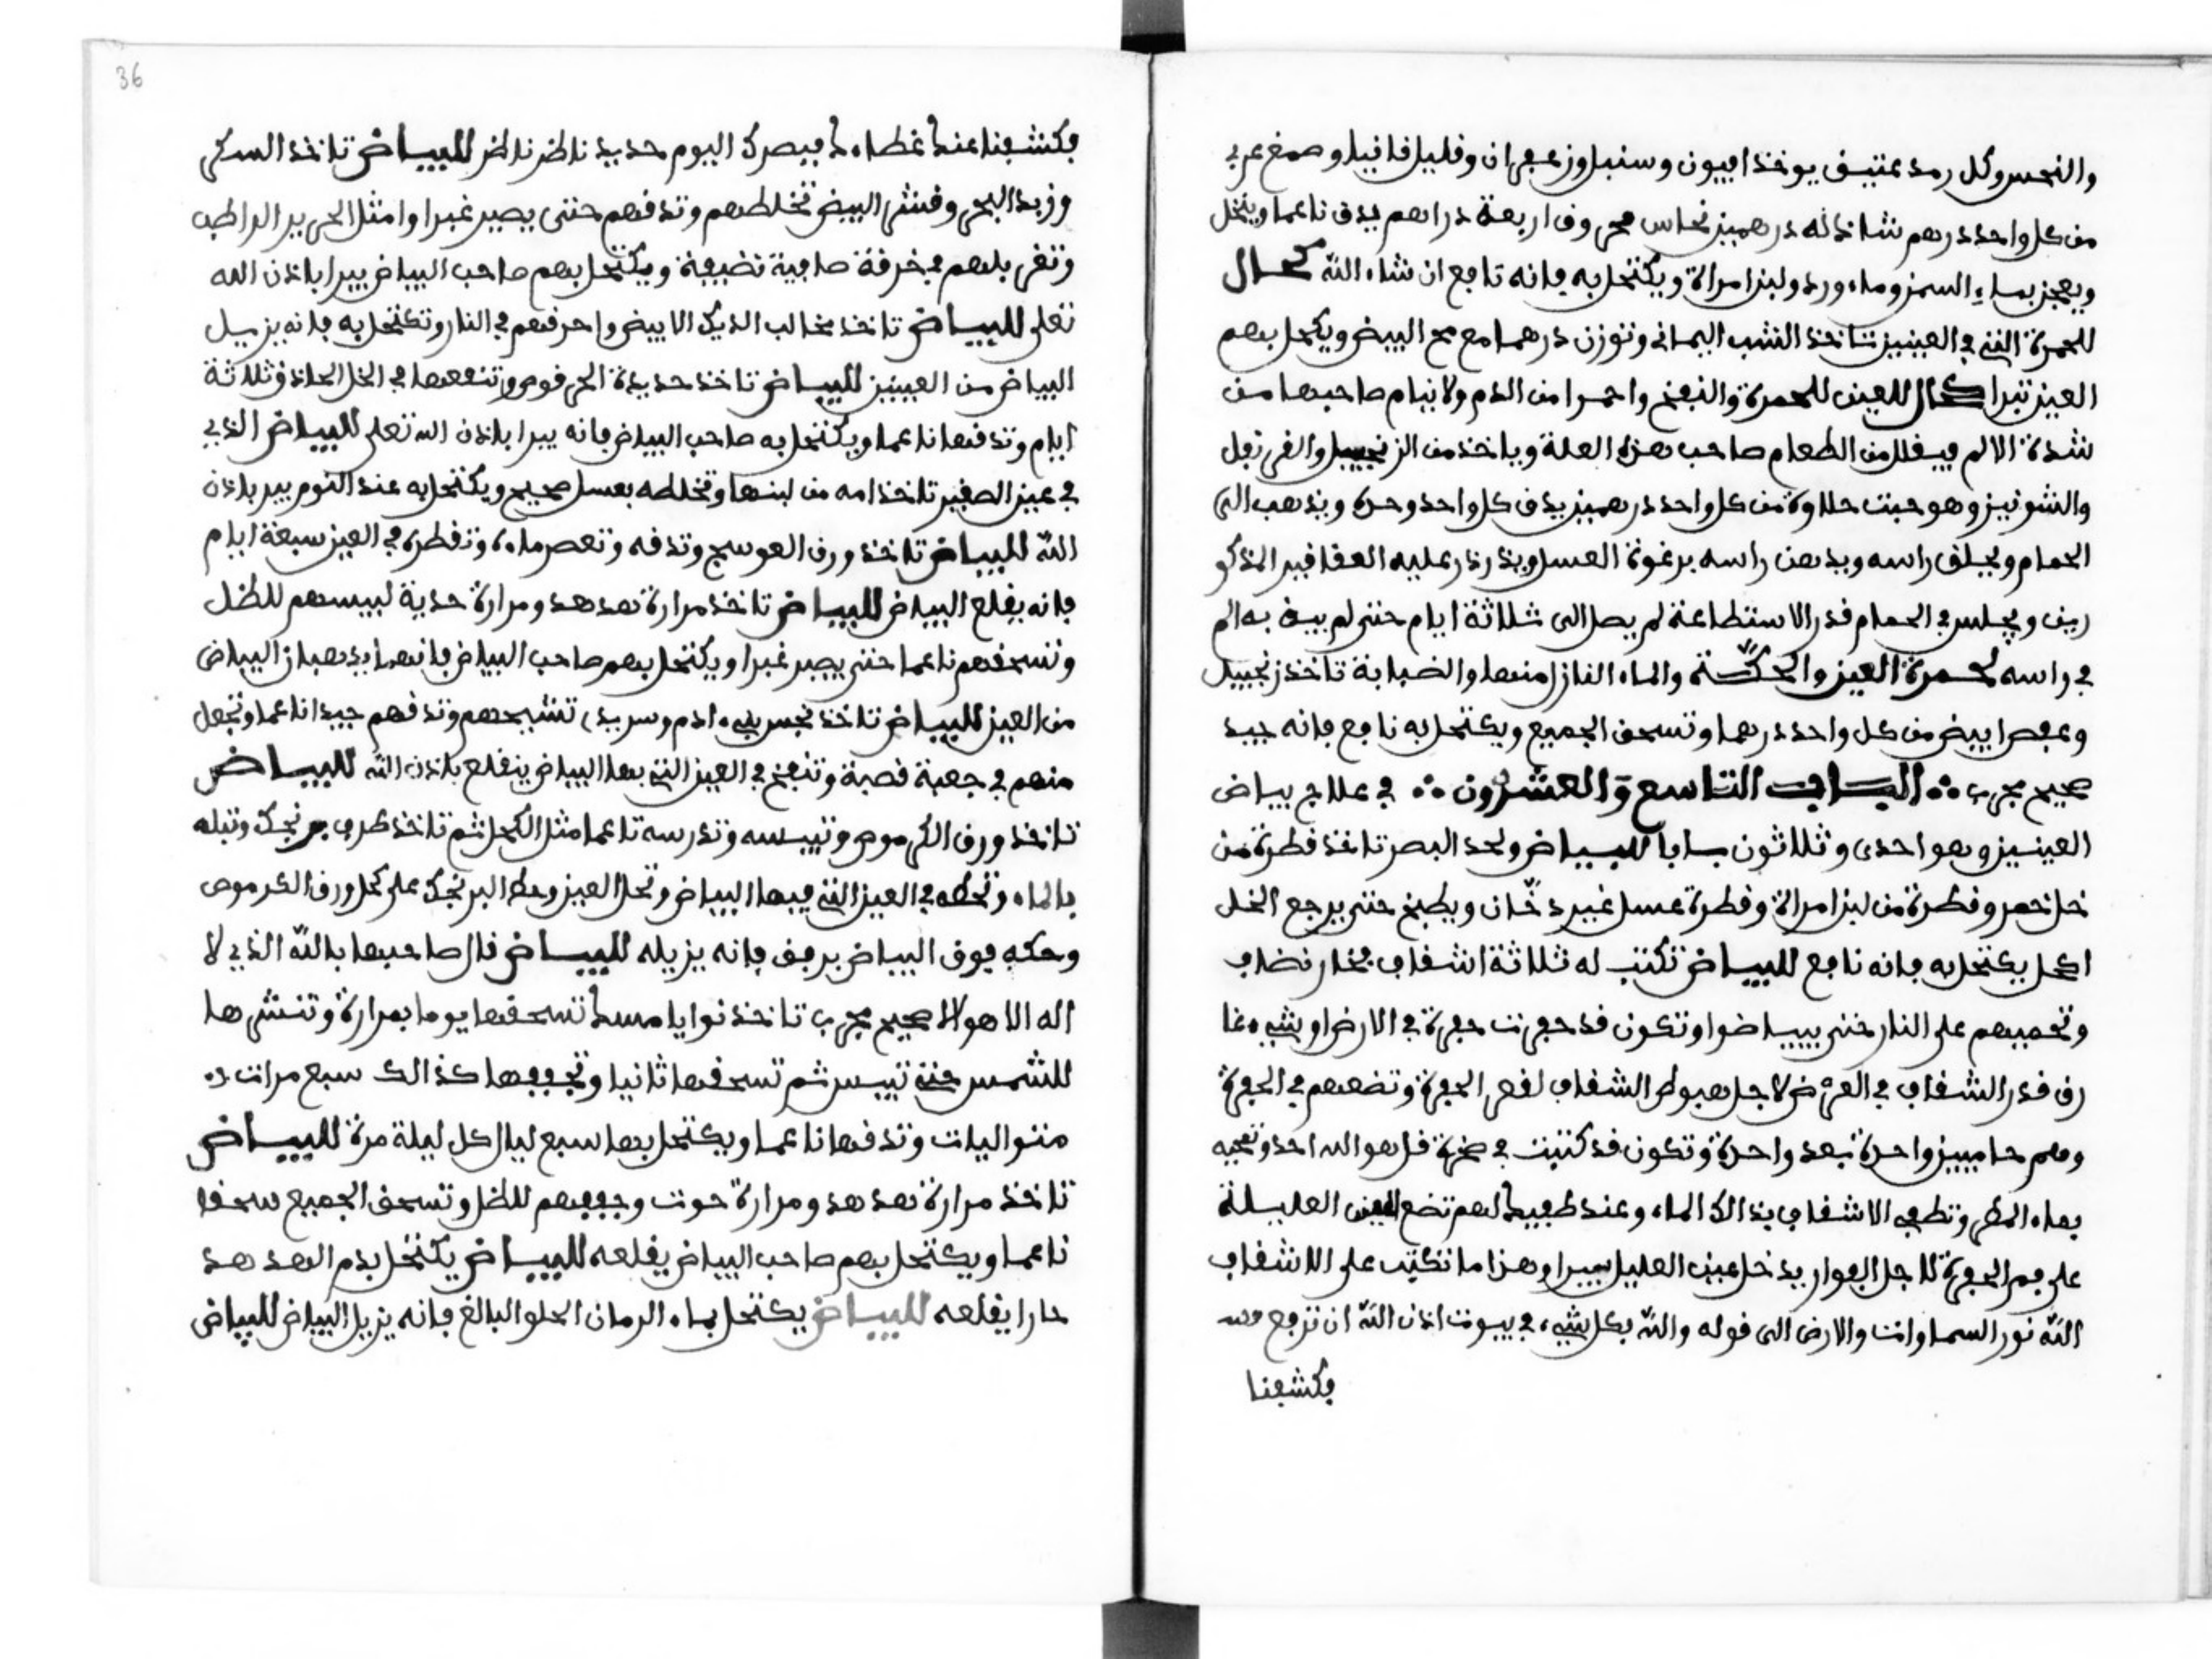 والنحس وكل رمد عتيق يوخذ افيون وسنبل وزعفران وقليل فافيا وصمغ عربي
من كل واحد درهم شاذنه درهمين نحاس محروق اربعة دراهم يدق ناعما وينخل
ويعجن بماء السمن وماء ورد ولبن امراة ويكتحل به فانه نافع ان شاء الله كحال
للحمرة التي في العينين تاخذ الشب اليماني وتوزن درهما مع مح البيض ويكحل بهم
العين تبرا كحال للعين للحمرة والنفخ واحمرا من الدم ولا ينام صاحبها من
شدة الالم فيقلل من الطعام صاحب هذه العلة وياخذ من الزنجبيل والقرنفل
والشونيز وهو حبت حلاوة من كل واحد درهمين يدق كل واحد وحده ويذهب الى
الحمام ويحلق راسه ويدهن راسه برغوة العسل ويذرذر عليه العقاقير المذكو
رين ويجلس في الحمام قدر الاستطاعة لم يصل الى ثلاثة ايام حتى لم يبق به الم
في راسه لحمرة العين والحكة والماء النازل منها والضبابة تاخذ زنجبيل
وعفص ابيض من كل واحد درهما وتسحق الجميع ويكتحل به نافع فانه جيد
صحيح مجرب ∴ الباب التاسع والعشرون ∴ في علاج بياض
العينين وهو احدى وثلاثون بابا للبياض ولحد البصر تاخذ قطرة من
خل خمر وقطرة من لبن امراة وقطرة عسل غير دخان ويطبخ حتى يرجع الخل
اكحل يكتحل به فانه نافع للبياض تكتب له ثلاثة اشقاف فخار نضاف
وتحميهم على النار حتى يبياضوا وتكون قد حفرت حفرة في الارض او شيء غا
رق قدر الشقاف في العرض لاجل هبوط الشقاف لقعر الحفرة وتضعهم في الحفرة
وهم حاميين واحدة بعد واحدة وتكون قد كتبت في صحرة قل هو الله احد وتمحيه
بماء المطر وتطفي الاشقاف بذالك الماء وعند طفيك لهم تضع العين العليلة
على فم الحفرة لاجل البوار يدخل عين العليل يبرا وهذا ما تكتب على الاشقاف
الله نور السماوات والارض الى قوله والله بكل شيء في بيوت اذن الله ان ترفع
فكشفنا
فكشفنا عنك غطاءك فبصرك اليوم حديد ناظر ناظر للبياض تاخذ السكر
وزبد البحر وقشر البيض تخلطهم وتدقهم حتى يصير غبرا وامثل الحرير الراطب
وتغربلهم في خرقة صافية نضيفة ويكتحل بهم صاحب البياض يبرا باذن الله
تعلى للبياض تاخذ مخالب الديك الابيض واحرقهم في النار وتكتحل به فانه يزيل
البياض من العينين للبياض تاخذ حديدة الحرقوص وتنقعها في الخل الحاذق ثلاثة
ايام وتدقها ناعما ويكتحل به صاحب البياض فانه يبرا باذن الله تعلى للبياض الذي
في عين الصغير تاخذ امه من لبنها وتخلطه بعسل صحيح ويكتحل به عند النوم يبر باذن
الله للبياض تاخذ ورق العوسج وتدقه وتعصر ماءه وتقطره في العين سبعة ايام
فانه يقلع البياض للبياض تاخذ مرارة هدهد ومرارة حدية ليبسهم للظل
وتسحقهم ناعما حتى يصير غبرا ويكتحل بهم صاحب البياض فانهما يذهبان البياض
من العين للبياض تاخذ نجس بني ادم وسريد تشيحهم وتدقهم جيدا ناعما وتجعل
منهم في جعبة قصبة وتنفخ في العين التي بها البياض ينقلع باذن الله للبياض
تاخذ ورق الكرموص وتيبسه وتدرسه ناعما مثل الكحل ثم تاخذ طرف برنجك وتبله
بالماء وتحطه في العين التي فيها البياض وتحل العين وحط البرنجك على كحل ورق الكرموص
وحكه فوق البياض برفق فانه يزيله للبياض قال صاحبها بالله الذي لا
اله الا هو لاصحيح مجرب تاخذ نوايا مسك تسحقها يوما بمرارة وتنشرها
للشمس حتى تيبس ثم تسحقها ثانيا وتجففها كذالك سبع مرات
متواليات وتدقها ناعما ويكتحل بها سبع ليال كل ليلة مرة للبياض
تاخذ مرارة هدهد ومرارة حوت وجففهم للظل وتسحق الجميع سحقا
ناعما ويكتحل بهم صاحب البياض يقلعه للبياض يكتحل بدم الهدهد
حارا يقلعه للبياض يكتحل بماء الرمان الحلو البالغ فانه يزيل البياض للبياض
36